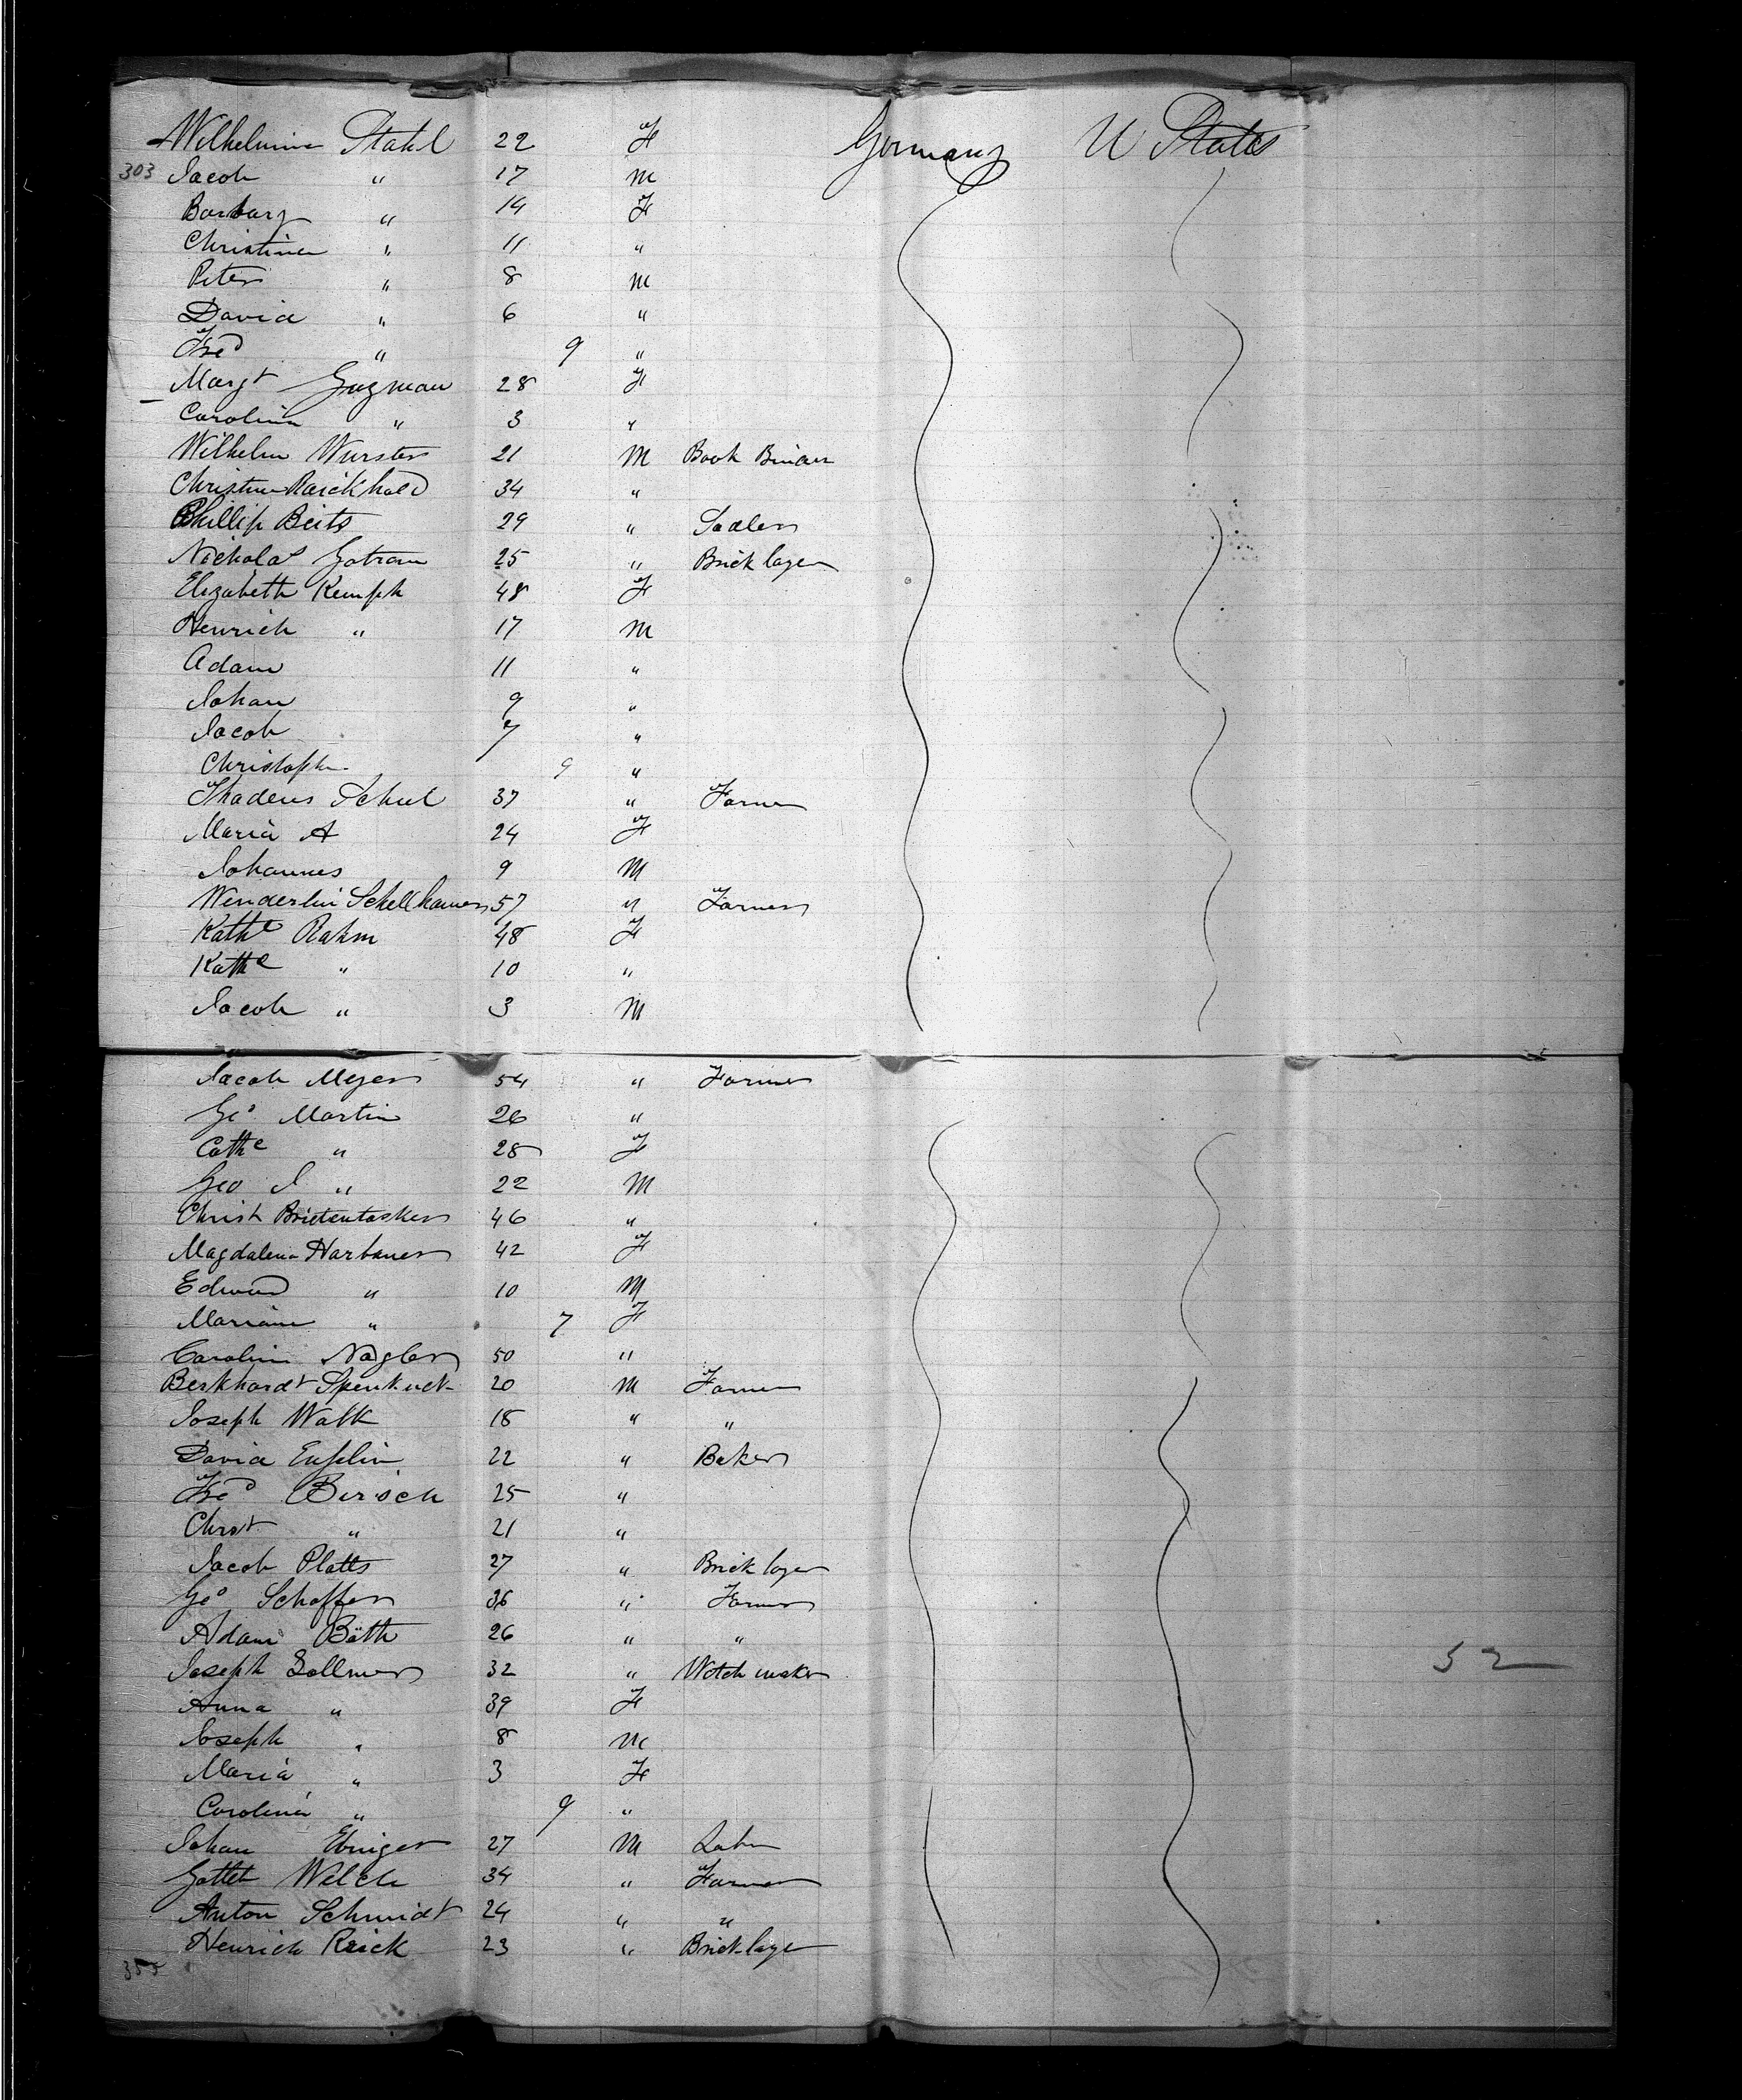 Wilhelmina Stahl 22 F Germany U States
303 Jacob " 17 M
Barbary " 14 F
Christina " 11 "
Peter " 8 M
David " 6 "
Fred " 9 "
Margt Guzman 28 F
Carolina " 3 "
Wilhelm Wurster 21 M Book Binder
Christian Raickhold 34 "
Phillip Beits 29 " Sadler
Nicholas Gotram 25 " Brick layer
Elizabeth Kemph 48 F
Henrich " 17 M
Adam 11 "
Johan 9 "
Jacob 7 "
Christoph 9 "
Thadeus Schul 37 " Farmer
Maria A 24 F
Johannes 9 M
Wenderlin Schellhamer 57 " Farmer
Kathe Rahm 48 F
Kathe " 10 "
Jacob " 3 M
Jacob Meyer 54 " Farmer
Geo Martin 26 "
Cathe " 28 F
Geo J " 22 M
Christ Brietentasker 46 "
Magdalena Harbauer 42 F
Edward " 10 M
Mariam " 7 F
Carolin Nagler 50 "
Berkhardt Spenkuck 20 M Farmer
Joseph Walk 18 " "
David Euplin 22 " Baker
Fred Birsch 25 "
Christ " 21 "
Jacob Platts 27 " Brick layer
Geo Schaffer 36 " Farmer
Adam Bäth 26 " "
Joseph Sollmer 32 " Watch maker 52
Anna " 39 F
Joseph " 8 M
Maria " 3 F
Carolina " 9 "
Johan Ebinger 27 M Labr
Gotleb Welch 34 " Farmer
Anton Schmidt 24 " "
Henrich Reick 23 " Brick layer
355